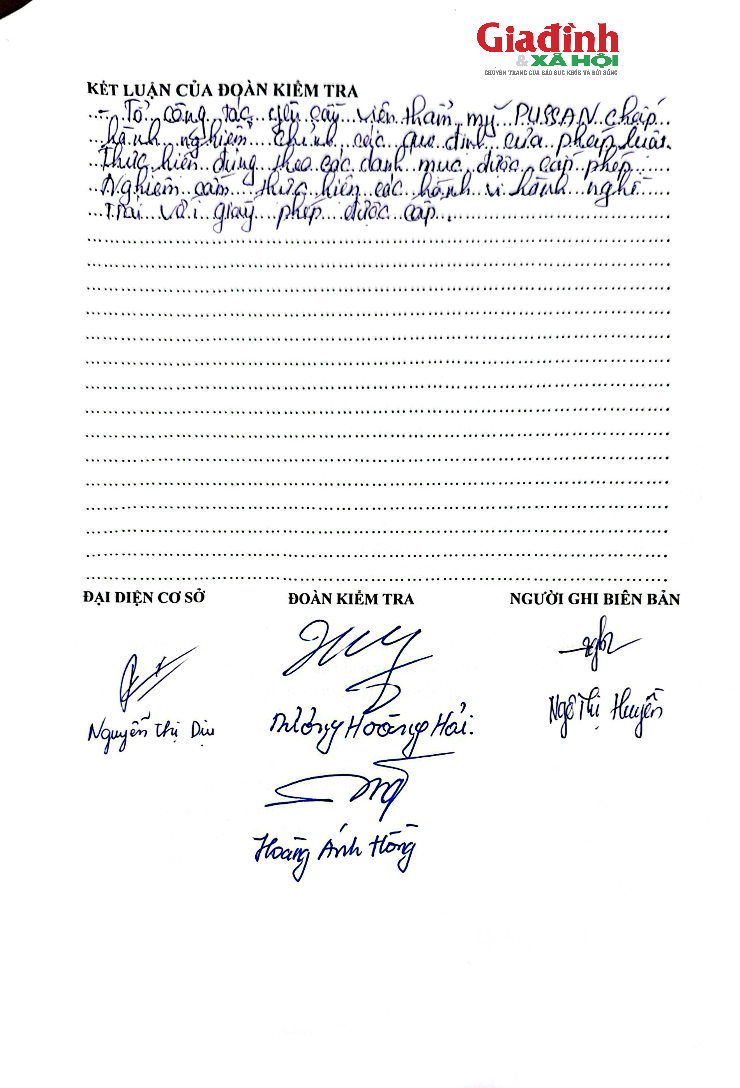 Giađình
& XÃ HỘI
CHUYÊN TRANG CỦA BÁO SỨC KHỎE VÀ ĐỜI SỐNG
KẾT LUẬN CỦA ĐOÀN KIỂM TRA
- Tổ công tác yêu cầu viện thẩm mỹ PUSSAN chấp
hành nghiêm chỉnh các quy định của pháp luật.
Thực hiện đúng theo các danh mục được cấp phép
Nghiêm cấm thực hiện các hành vi hành nghề
Trái với giấy phép được cấp.
ĐẠI DIỆN CƠ SỞ ĐOÀN KIỂM TRA NGƯỜI GHI BIÊN BẢN
Nguyễn Thị Dịu Hoàng Hải. Ngô Thị Huyền
Hoàng Ánh Hồng